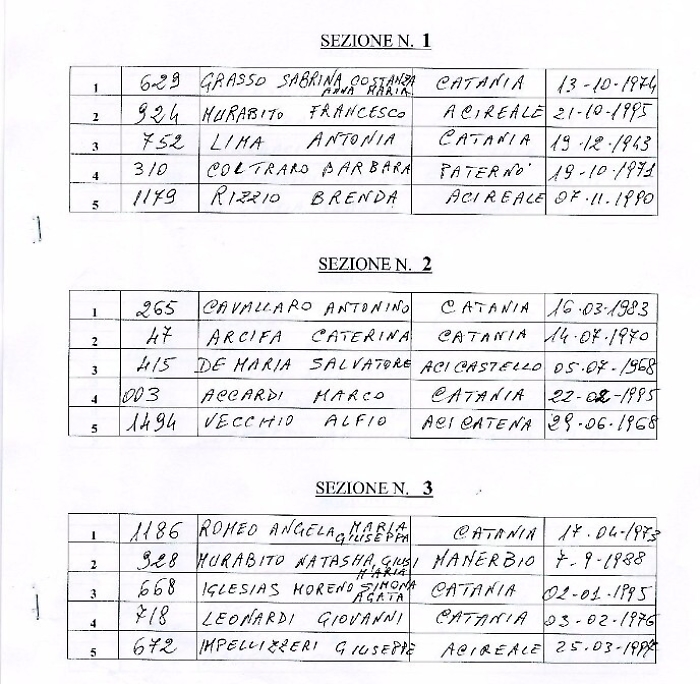 SEZIONE N. 1
1 629 GRASSO SABRINA, COSTANZA ANNA MARIA CATANIA 13-10-1974
2 924 MURABITO FRANCESCO ACIREALE 21-10-1995
3 752 LIMA ANTONIA CATANIA 19.12.1943
4 310 COLTRARO BARBARA PATERNO' 19-10-1971
5 1179 RIZZIO BRENDA ACIREALE 07.11.1990
SEZIONE N. 2
1 265 CAVALLARO ANTONINO CATANIA 16.03.1983
2 47 ARCIFA CATERINA CATANIA 14.07.1970
3 415 DE MARIA SALVATORE ACI CASTELLO 05.07.1968
4 003 ACCARDI MARCO CATANIA 22-02-1995
5 1494 VECCHIO ALFIO ACI CATENA 29.06.1968
SEZIONE N. 3
1 1186 ROMEO ANGELA MARIA GIUSEPPA CATANIA 17.04-1973
2 928 MURABITO NATASHA, GIUSI MARIA MANERBIO 7-9-1988
3 668 IGLESIAS MORENO SIMONA AGATA CATANIA 02-01-1995
4 718 LEONARDI GIOVANNI CATANIA 03-02-1976
5 672 IMPELLIZZERI GIUSEPPE ACIREALE